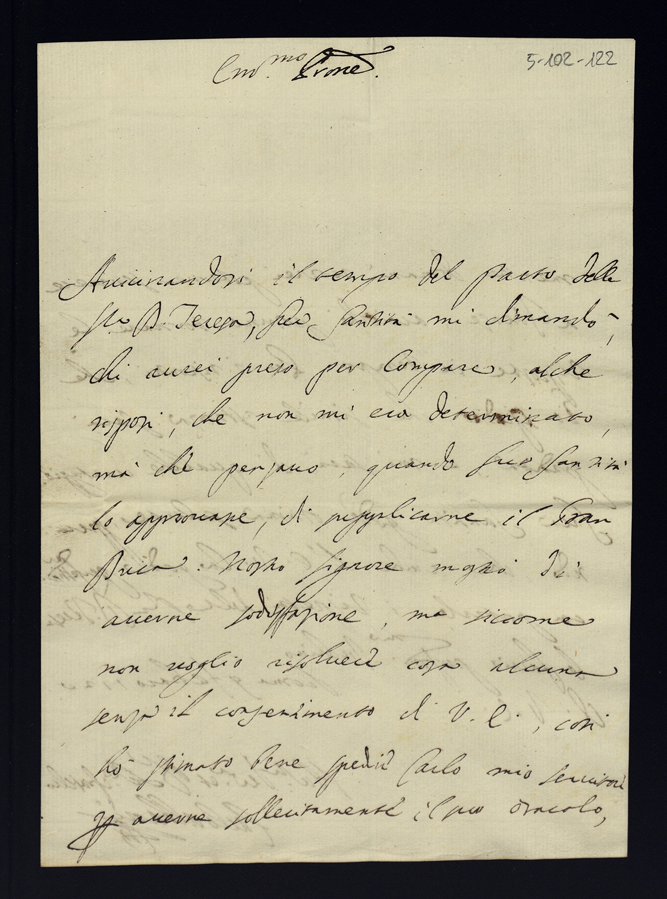 5-102-122
Em.mo Prone.
Avicinandosi il tempo del parto della
Sra D. Teresa, sua Santità mi dimandò,
chi avrei preso per Compare, alche
risposi, che non mi era determinato,
mà che pensavo, quando sua Santità
lo approvasse, di supplicarne il Gran
Duca: Nostro Signore mostrò di
averne sodisfazione, ma siccome
non voglio risolvere cosa alcuna
senza il consentimento di V. E., così
hò stimato bene spedire Carlo mio servitore
per averne sollecitamente il suo oracolo,